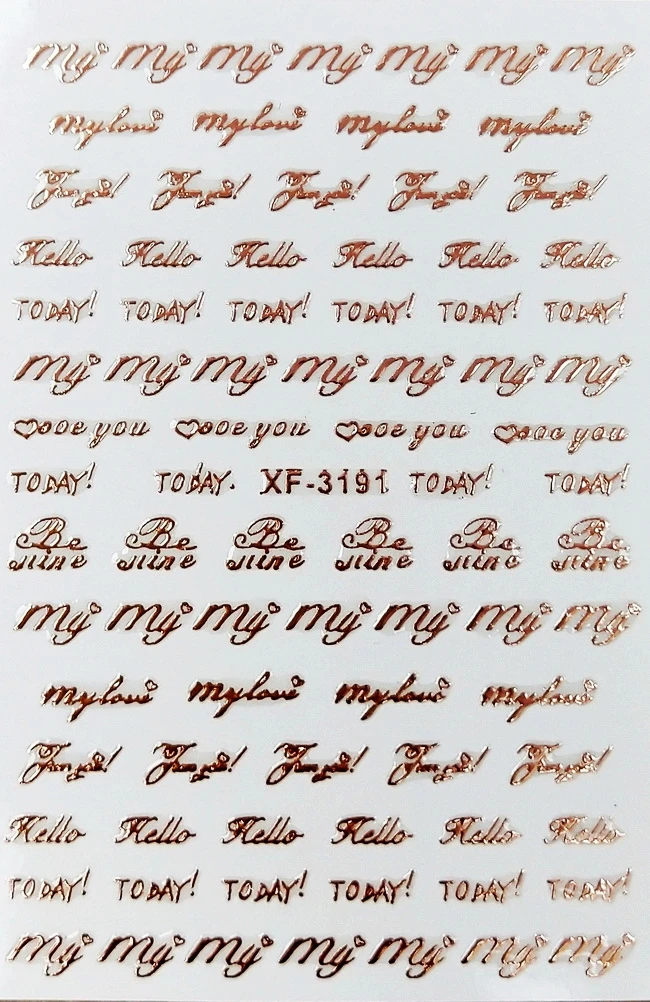 My My My My My My My
my love my love my love my love
Hello Hello Hello Hello Hello Hello
TODAY! TODAY! TODAY! TODAY! TODAY! TODAY!
My My My My My My My
you you you you
TODAY! TODAY. XF-3191 TODAY! TODAY!
Be Be Be Be Be Be
mine mine mine mine mine mine
My My My My My My My
my love my love my love my love
Hello Hello Hello Hello Hello Hello
TODAY! TODAY! TODAY! TODAY! TODAY! TODAY!
My My My My My My My